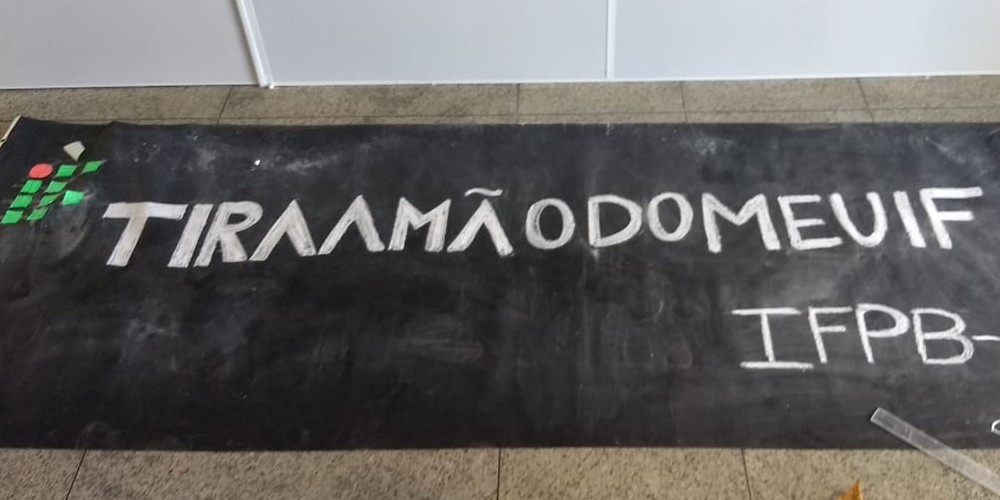 TIRAAMÃODOMEUIF
IFPB-